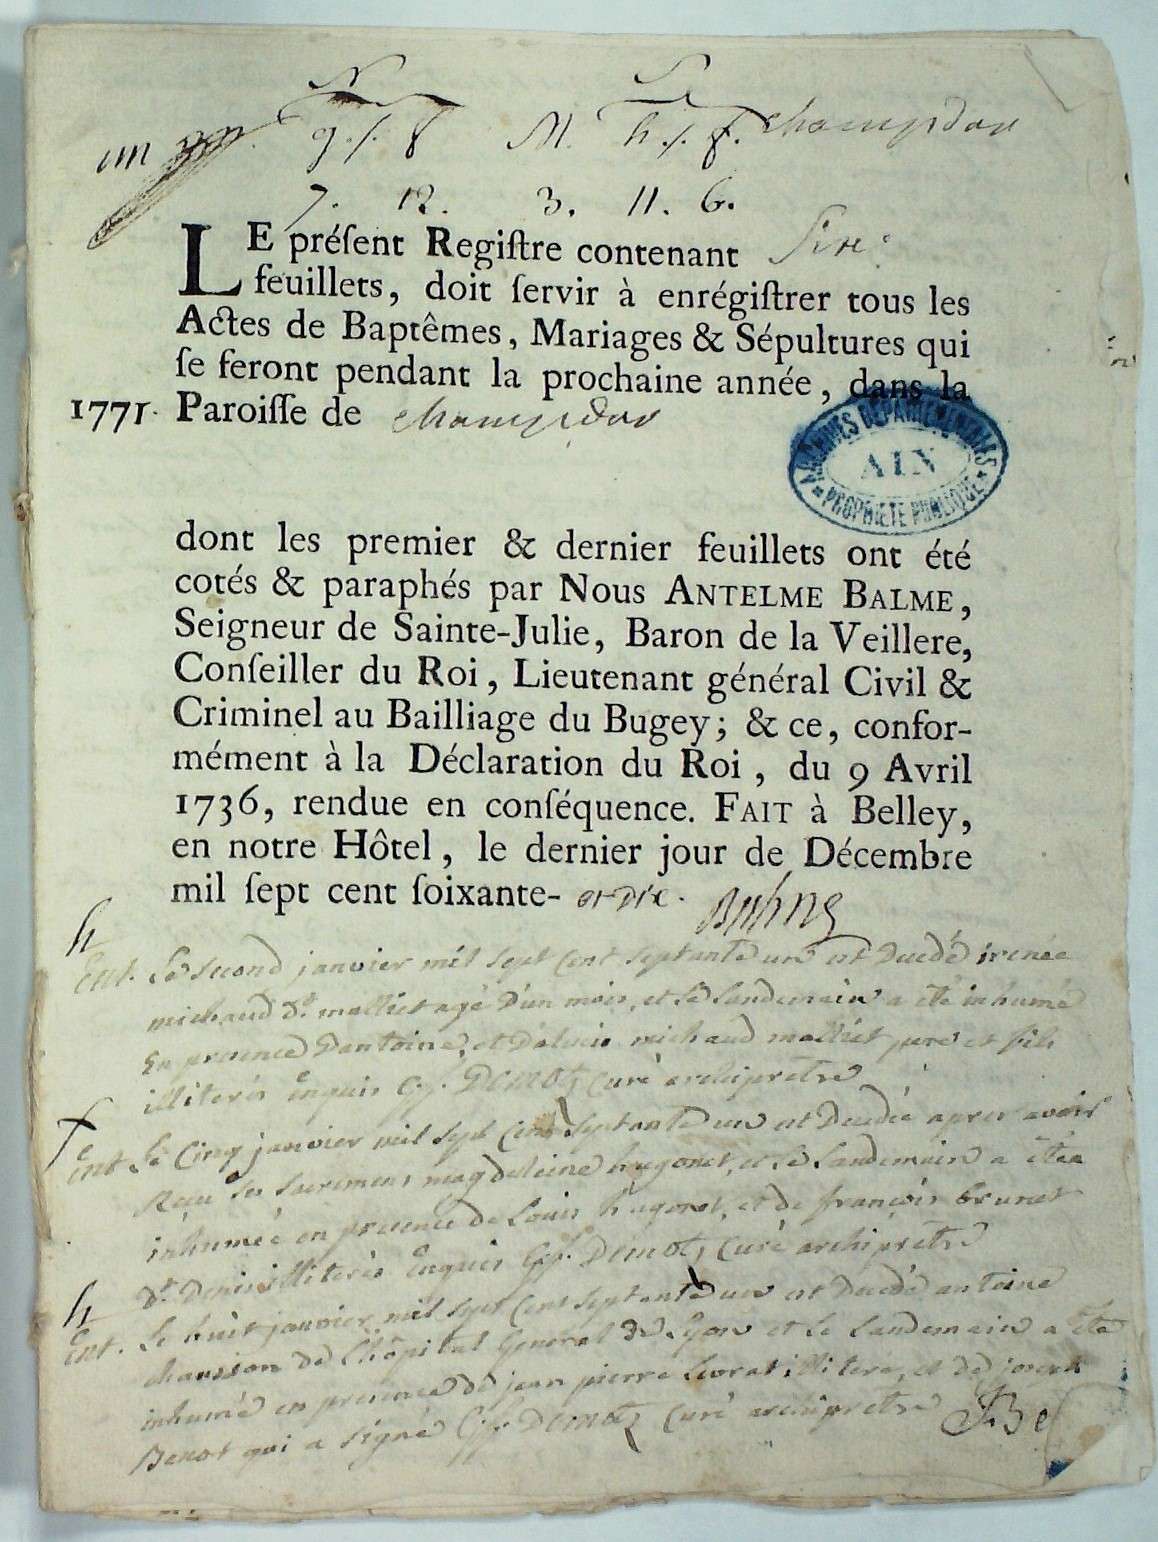 un
N S
g. /. f M. h. /. f. champdor
7. 12. 3. 11. 6.
LE préſent Regiſtre contenant
feuillets, doit ſervir à enrégiſtrer tous les
Actes de Baptêmes, Mariages & Sépultures qui
ſe feront pendant la prochaine année, dans la
1771. Paroiſſe de champdor
ARCHIVES DÉPARTEMENTALES
AIN
* PROPRIÉTÉ PUBLIQUE *
dont les premier & dernier feuillets ont été
cotés & paraphés par Nous ANTELME BALME,
Seigneur de Sainte-Julie, Baron de la Veillere,
Conſeiller du Roi, Lieutenant général Civil &
Criminel au Bailliage du Bugey; & ce, confor-
mément à la Déclaration du Roi, du 9 Avril
1736, rendue en conſéquence. FAIT à Belley,
en notre Hôtel, le dernier jour de Décembre
mil ſept cent ſoixante- et dix. Balme
h
Ent. Le second janvier mil sept cent septante un est decedé irenée
michaud dt malliet agé d'un mois, et le landemain a été inhumé
En presence D'antoine, et michaud malliet pere et fils
illiterés enquis Demoz curé archipretre
f
Ent Le Cinq janvier mil sept cent septante un est decedée apres avoir
Reçu ses sacremens magdeleine hugonet, et le landemain a été
inhumée en presence de Louis hugonet, et de françois brunet
dt Denis illiterés Enquis Demoz curé archipretre
h
Ent. Le huit janvier mil sept cent septante un est decedé antoine
chanson de L'hôpital General de Lyon et le landemain a été
inhumé en presence de jean pierre Livrat illitere, et de joseph
Benot qui a signé Demoz curé archipretre J. Be